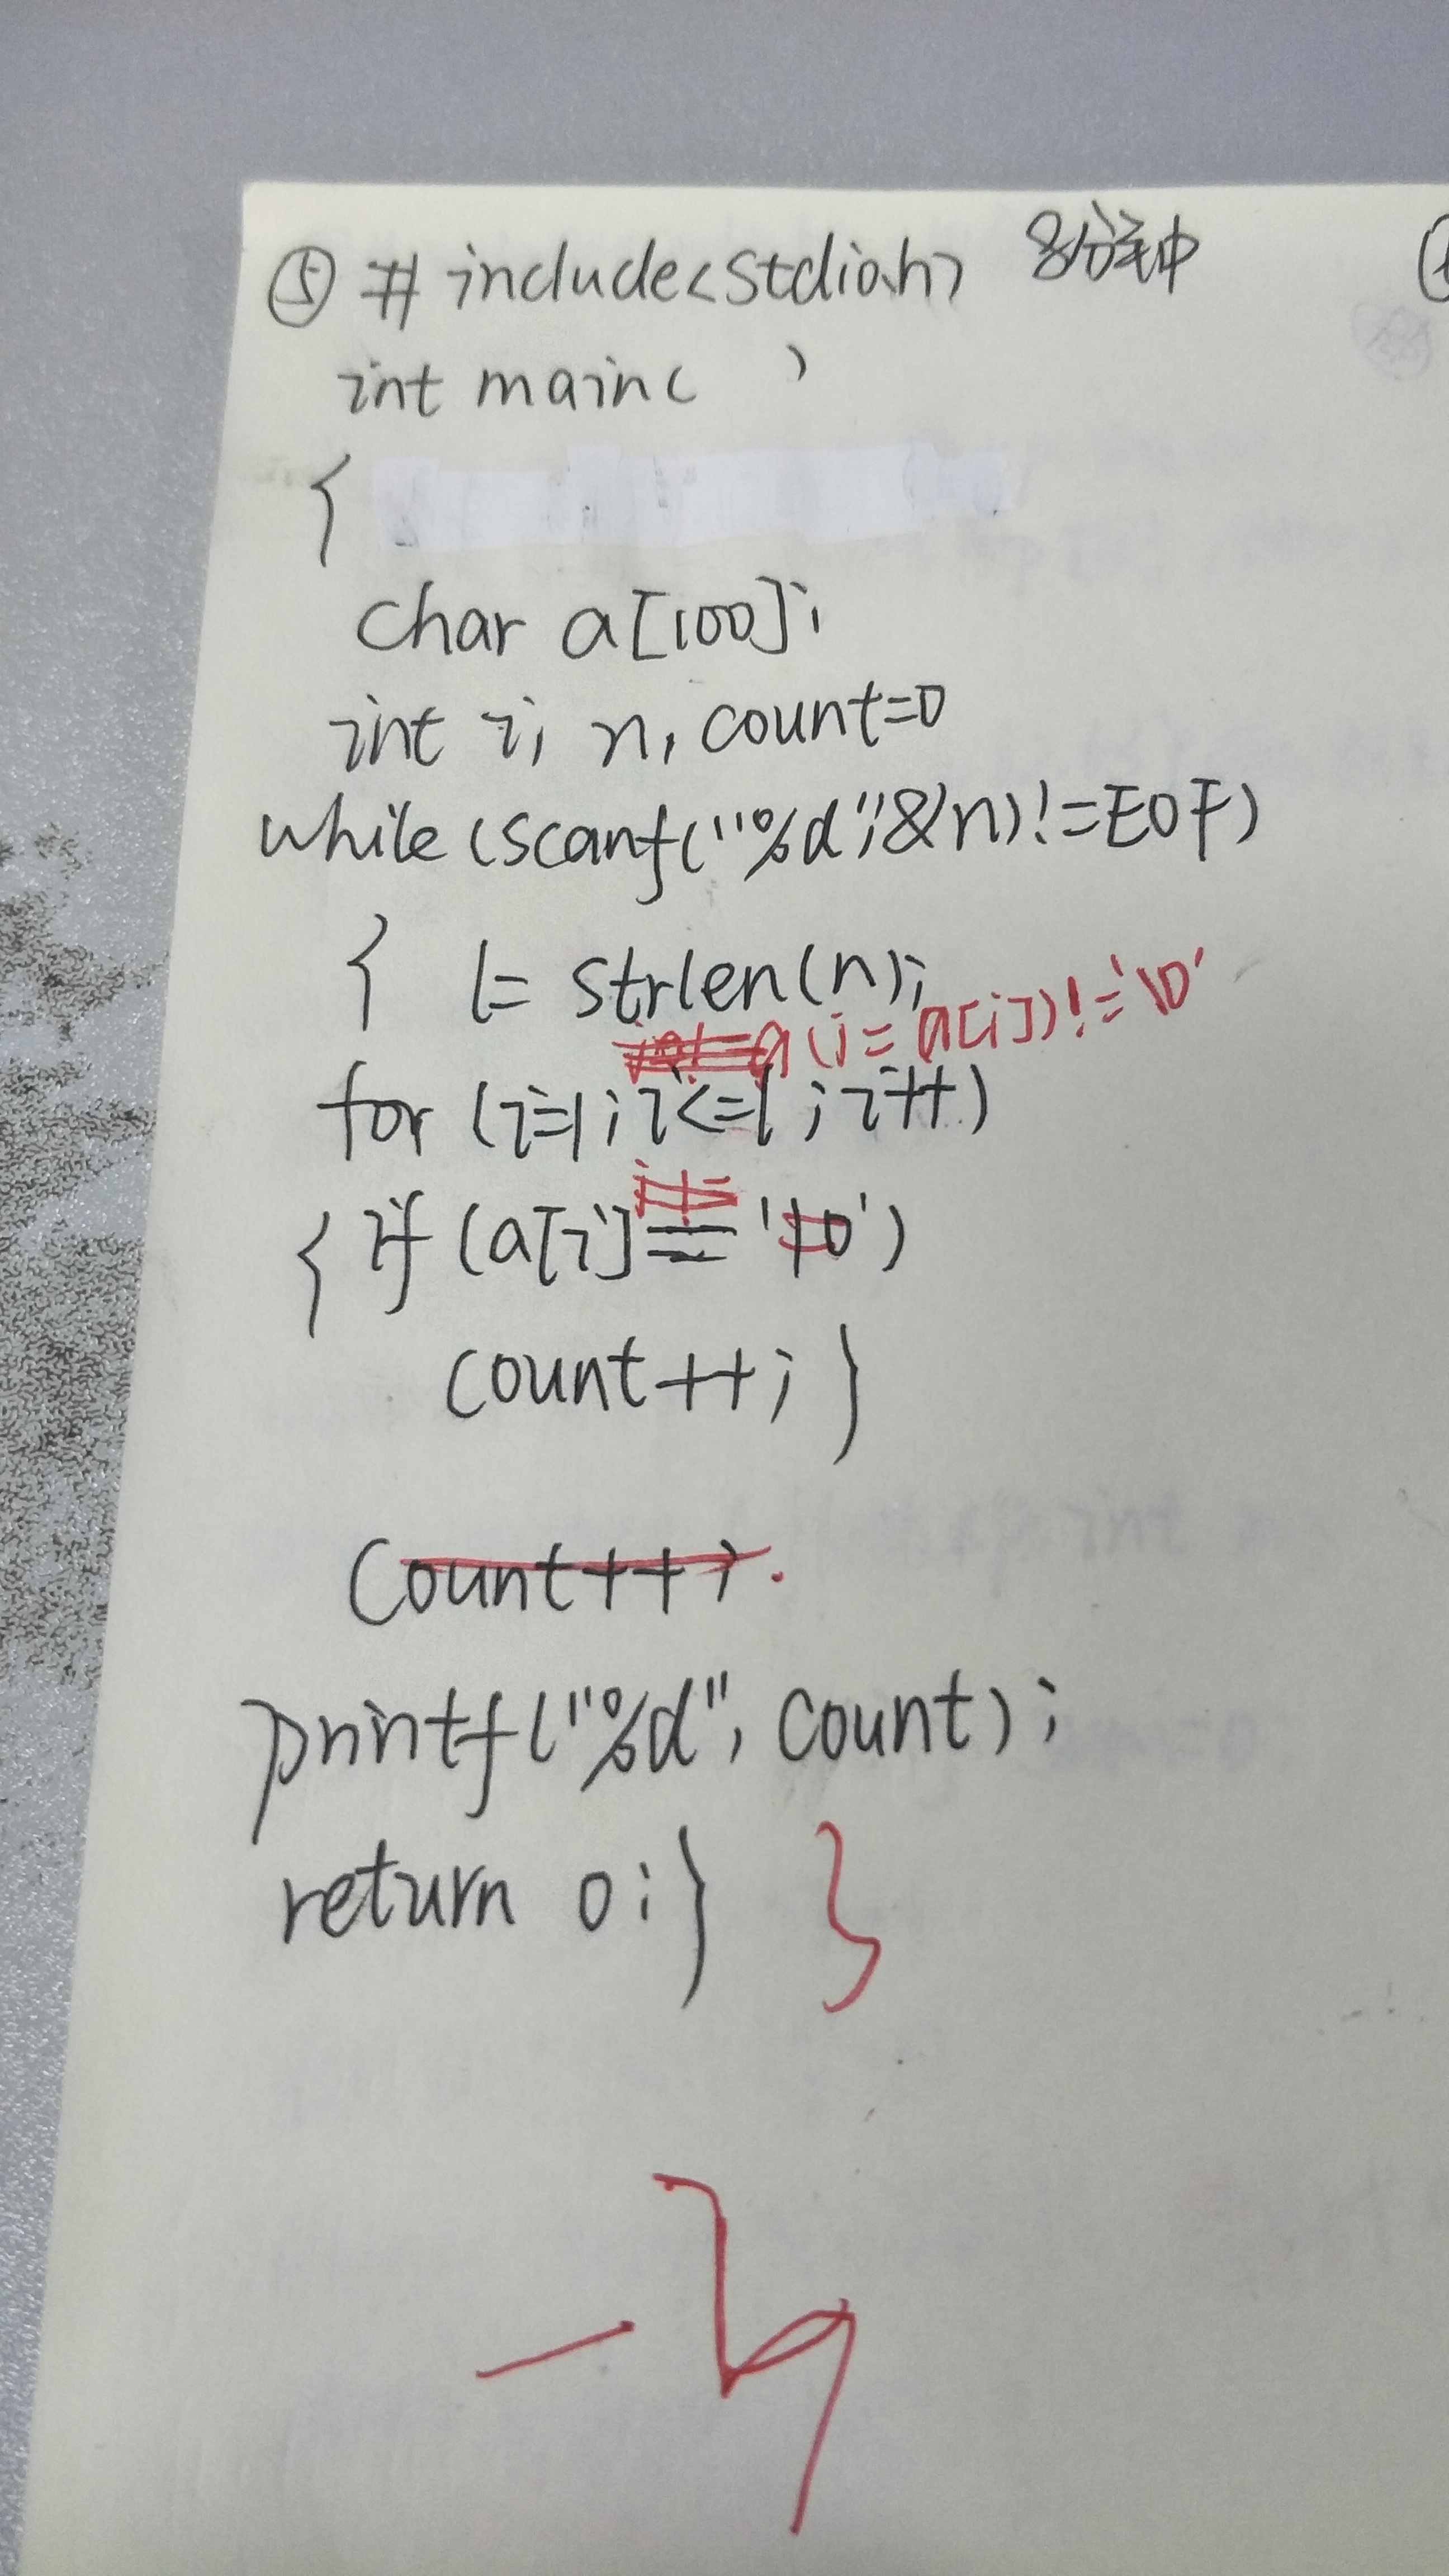 ⑤ #include<stdio.h> 8分钟
int main( )
{
char a[100];
int i, n, count=0
while (scanf("%d",&n)!=EOF)
{ l= strlen(n);
(i= a[i])!='\0'
for (i=1; i<=l; i++)
{ if (a[i]== '\0')
count++; }
count++;
printf("%d", count);
return 0; } }